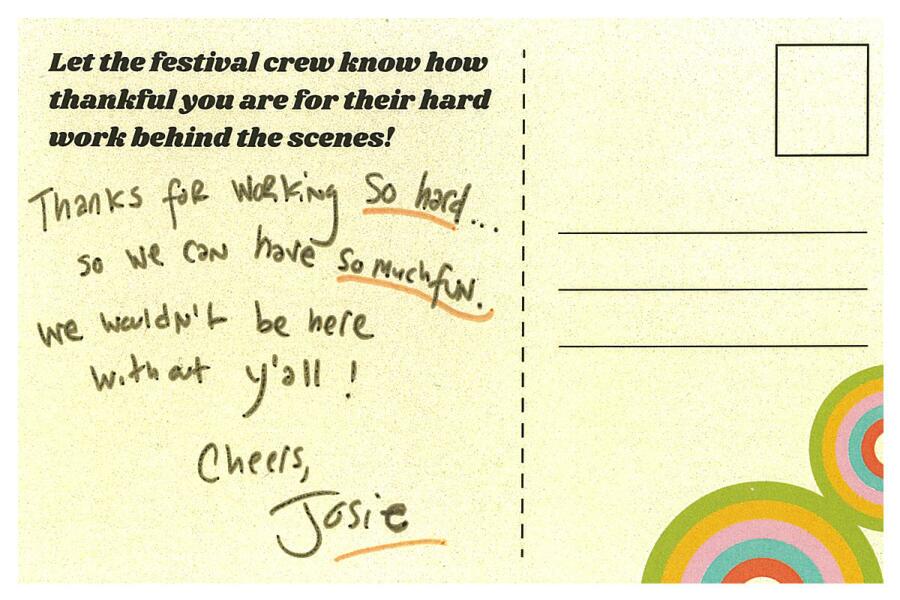 Let the festival crew know how
thankful you are for their hard
work behind the scenes!
Thanks for working so hard...
so we can have so much fun.
we wouldn't be here
without y'all!
Cheers,
Josie